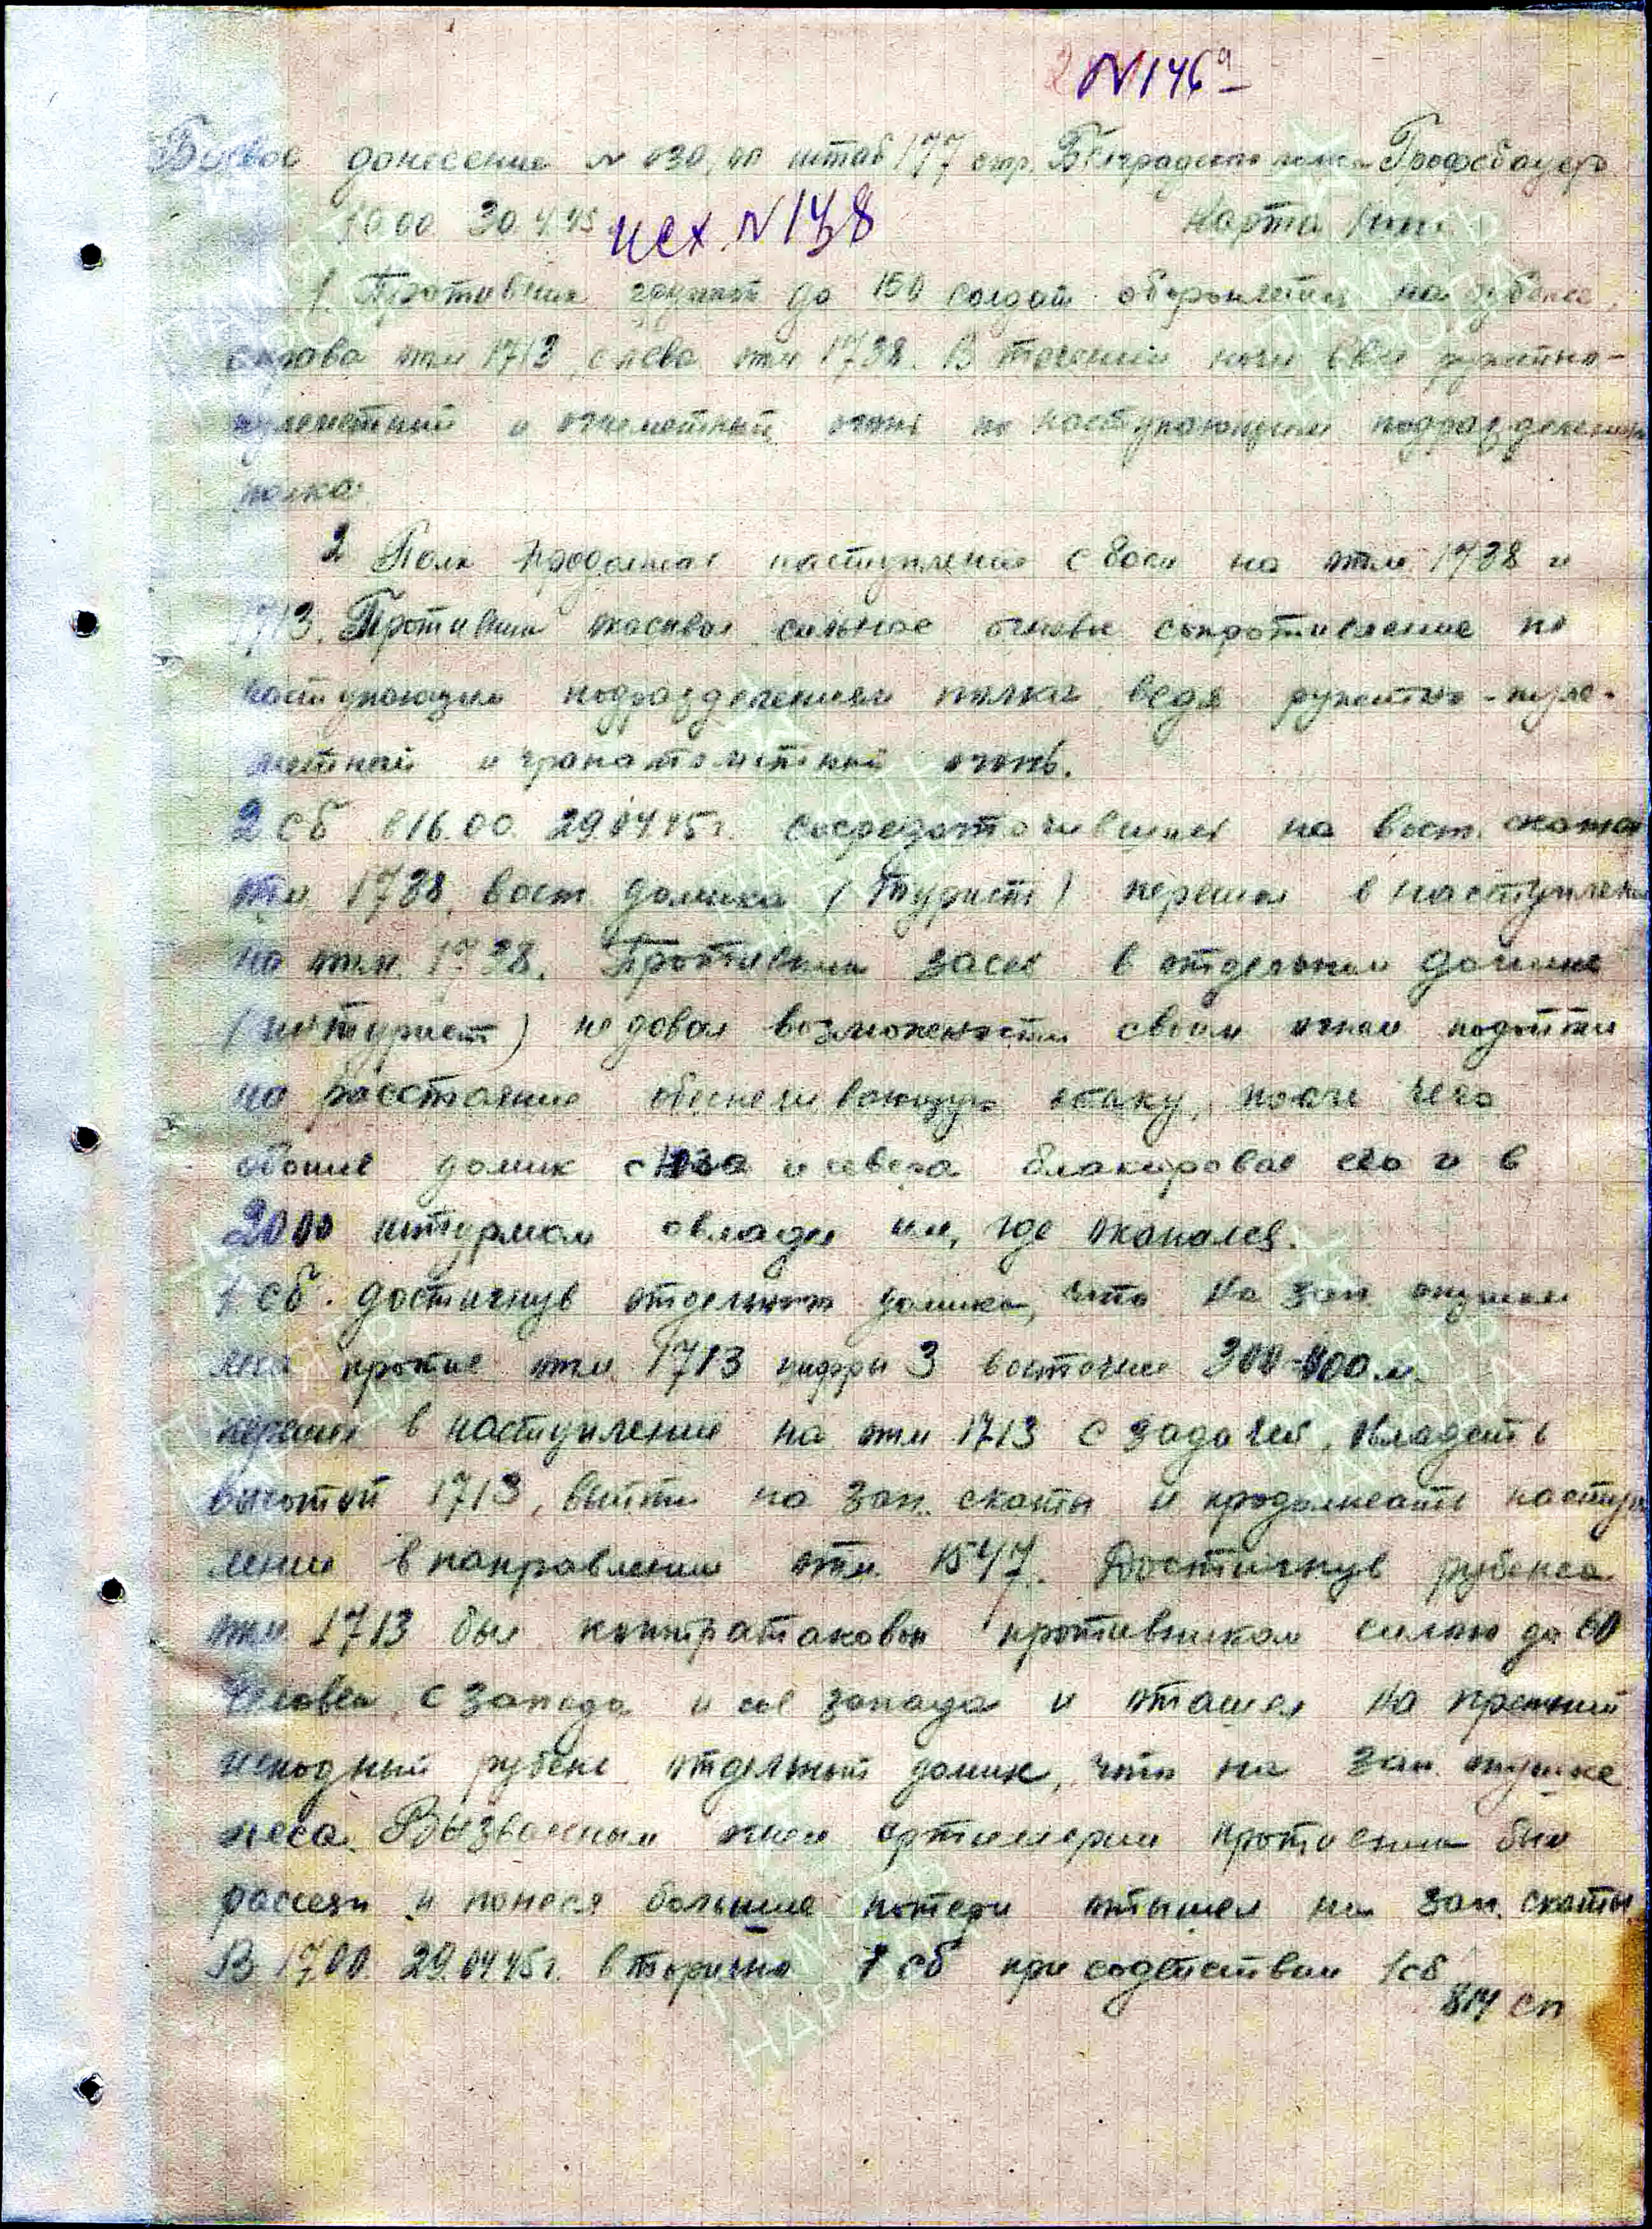 N 146а
Боевое донесение N 030, оп штаб 177 стр. Белградского полка Грофсбауер
10.00 30.4.45 исх. N 138 Карта
1 Противник группой до 150 солдат обороняется на рубеже,
справа отм 1713, слева отм 1738. В течении ночи вел ружейно-
пулеметный и огнеметный огонь по наступающим подразделениям
полка.
2 Полк продолжал наступление с боем на отм 1738 и
1713. Противник оказывал сильное огневое сопротивление по
наступающим подразделениям полка ведя ружейно-пуле-
метный и гранатометный огонь.
2 сб в 16.00 29.04.45г. сосредоточившись на вост. скатах
отм 1738, вост. домика (Турист) перешел в наступление
на отм. 1738. Противник засев в отдельном домике
(Турист) не довал возможности своим огнем подойти
на расстояние обеспечивающую атаку, после чего
обошле домик с юга и севера блакировал его и в
20.00 штурмом овладел им, где окапался.
1 сб. достигнув отдельного домика, что на зап. опушке
леса против отм. 1713 цифры 3 восточнее 300-400 м.
перешел в наступление на отм 1713 с задачей, овладеть
высотой 1713, выйти на зап. скаты и продолжать наступ
ление в направлении отм. 1547. Достигнув рубежа
отм. 1713 был контратакован противником силою до 60
человек, с запада и сев запада и оташел на прежний
исходный рубеж отдельный домик, что на зап. опушке
леса. Вызванным огнем артилерии противник был
рассеян и понеся большие потери отышел на зап. скаты
В 17.00. 29.04.45г. вторично 1 сб при содействии 1сб
814 сп
ПАМЯТЬ
НАРОДА